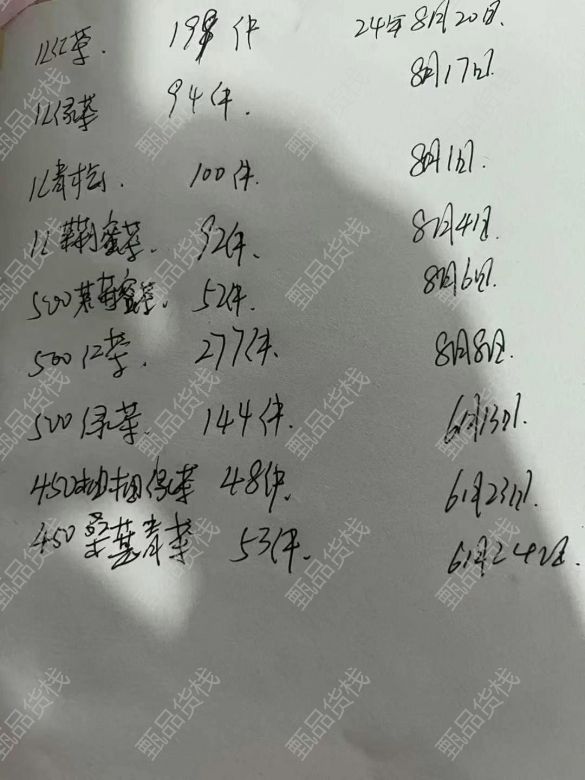 1L红茶 198件 24年8月20日
1L绿茶 94件. 8月17日.
1L青梅. 100件. 8月1日.
1L茉莉蜜茶. 92件. 8月4日
500茉莉蜜茶. 52件. 8月6日.
500红茶. 277件. 8月8日.
500绿茶. 144件. 6月13日.
450 绿茶 48件. 6月23日.
450 青茶 53件. 6月24日.
甄品货栈